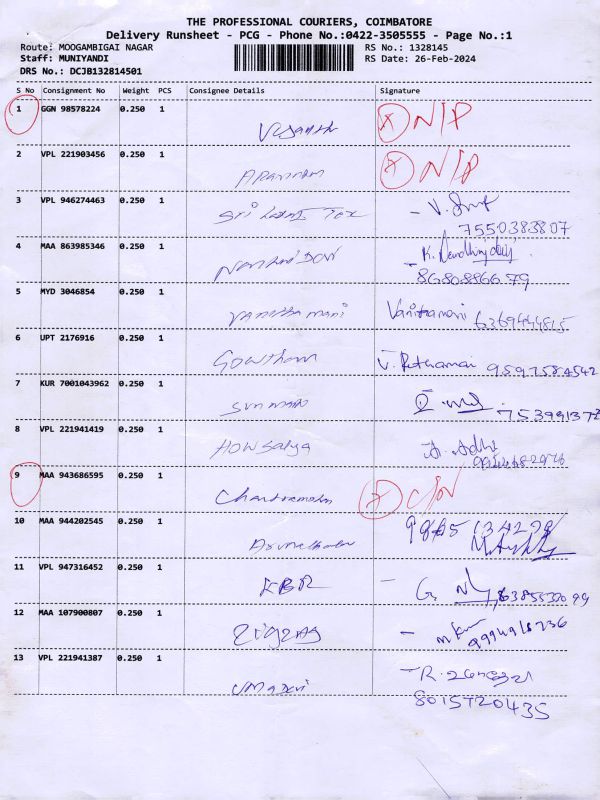 THE PROFESSIONAL COURIERS, COIMBATORE
Delivery Runsheet - PCG - Phone No.:0422-3505555 - Page No.:1
Route: MOOGAMBIGAI NAGAR RS No.: 1328145
Staff: MUNIYANDI RS Date: 26-Feb-2024
DRS No.: DCJB132814501
S No Consignment No Weight PCS Consignee Details Signature
1 GGN 98578224 0.250 1 N/P
2 VPL 221903456 0.250 1 N/P
3 VPL 946274463 0.250 1 Sri Laxmi Tex - V.
7550383807
4 MAA 863985346 0.250 1 K.
8680886679
5 MYD 3046854 0.250 1 Vanitha mani Vanitramani 6369444815
6 UPT 2176916 0.250 1 Gowtham V. Rethamai 9597584542
7 KUR 7001043962 0.250 1
8 VPL 221941419 0.250 1 HOWSALYA
9 MAA 943686595 0.250 1 Chandramohan
10 MAA 944202545 0.250 1
11 VPL 947316452 0.250 1 KBR - G.
12 MAA 107900807 0.250 1 ZIGZAG -
13 VPL 221941387 0.250 1 UMADEVI - R.
8015720435